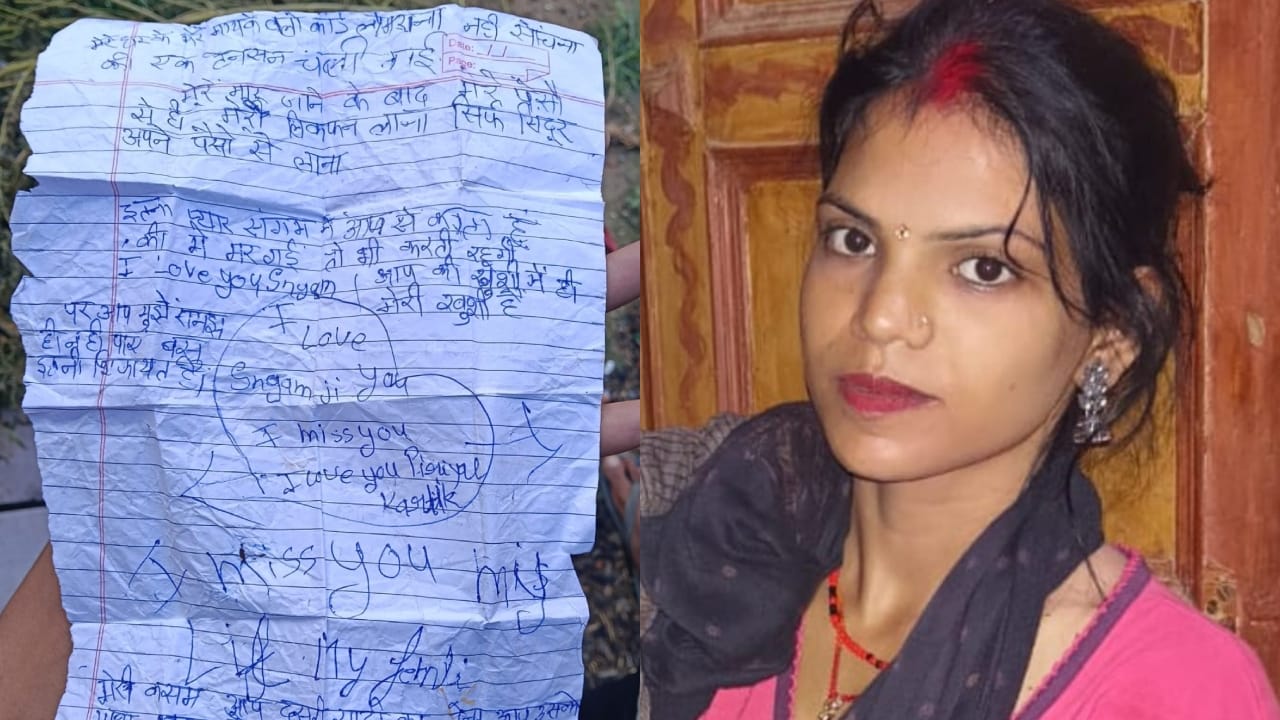 मेरे मायके वलो कोई नही सोचना
की एक इनसन चली गई
Date: 11
Page:
मेरे मर जाने के बाद मेरे पैसो
से ही मेरी लाना सिर्फ सिदूर
अपने पैसो से लाना
इतना प्यार संगम मे आप से करती हूँ
की मै मर गई तो भी करती रहूगी
I Love you Sngam आप की खुशी मे ही
मेरी खुशी है
पर आप मुझे समझ
ही नही पाए बस
इतना शिकायत है
I
Love
Sngam ji you
I miss you
I Love you
Kartik
I miss you my
Life My
मेरी कसम आप दुसरी